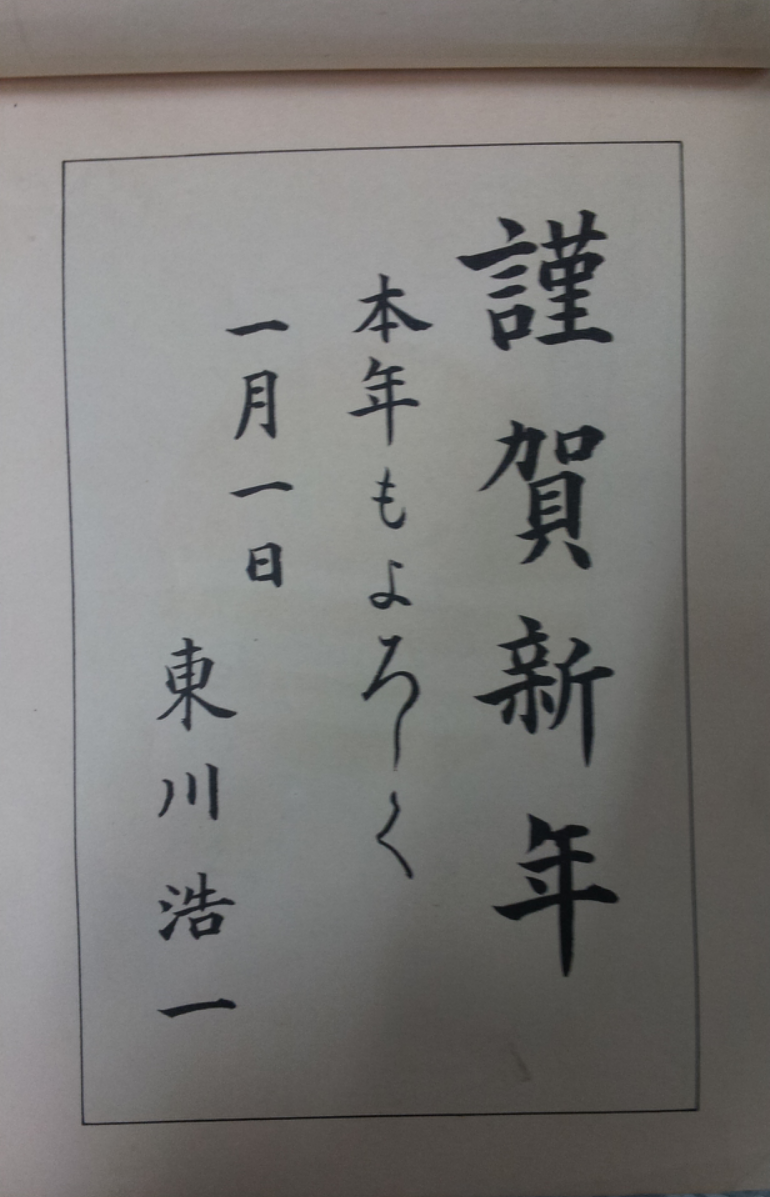 謹賀新年
本年もよろしく
一月一日
東川浩一